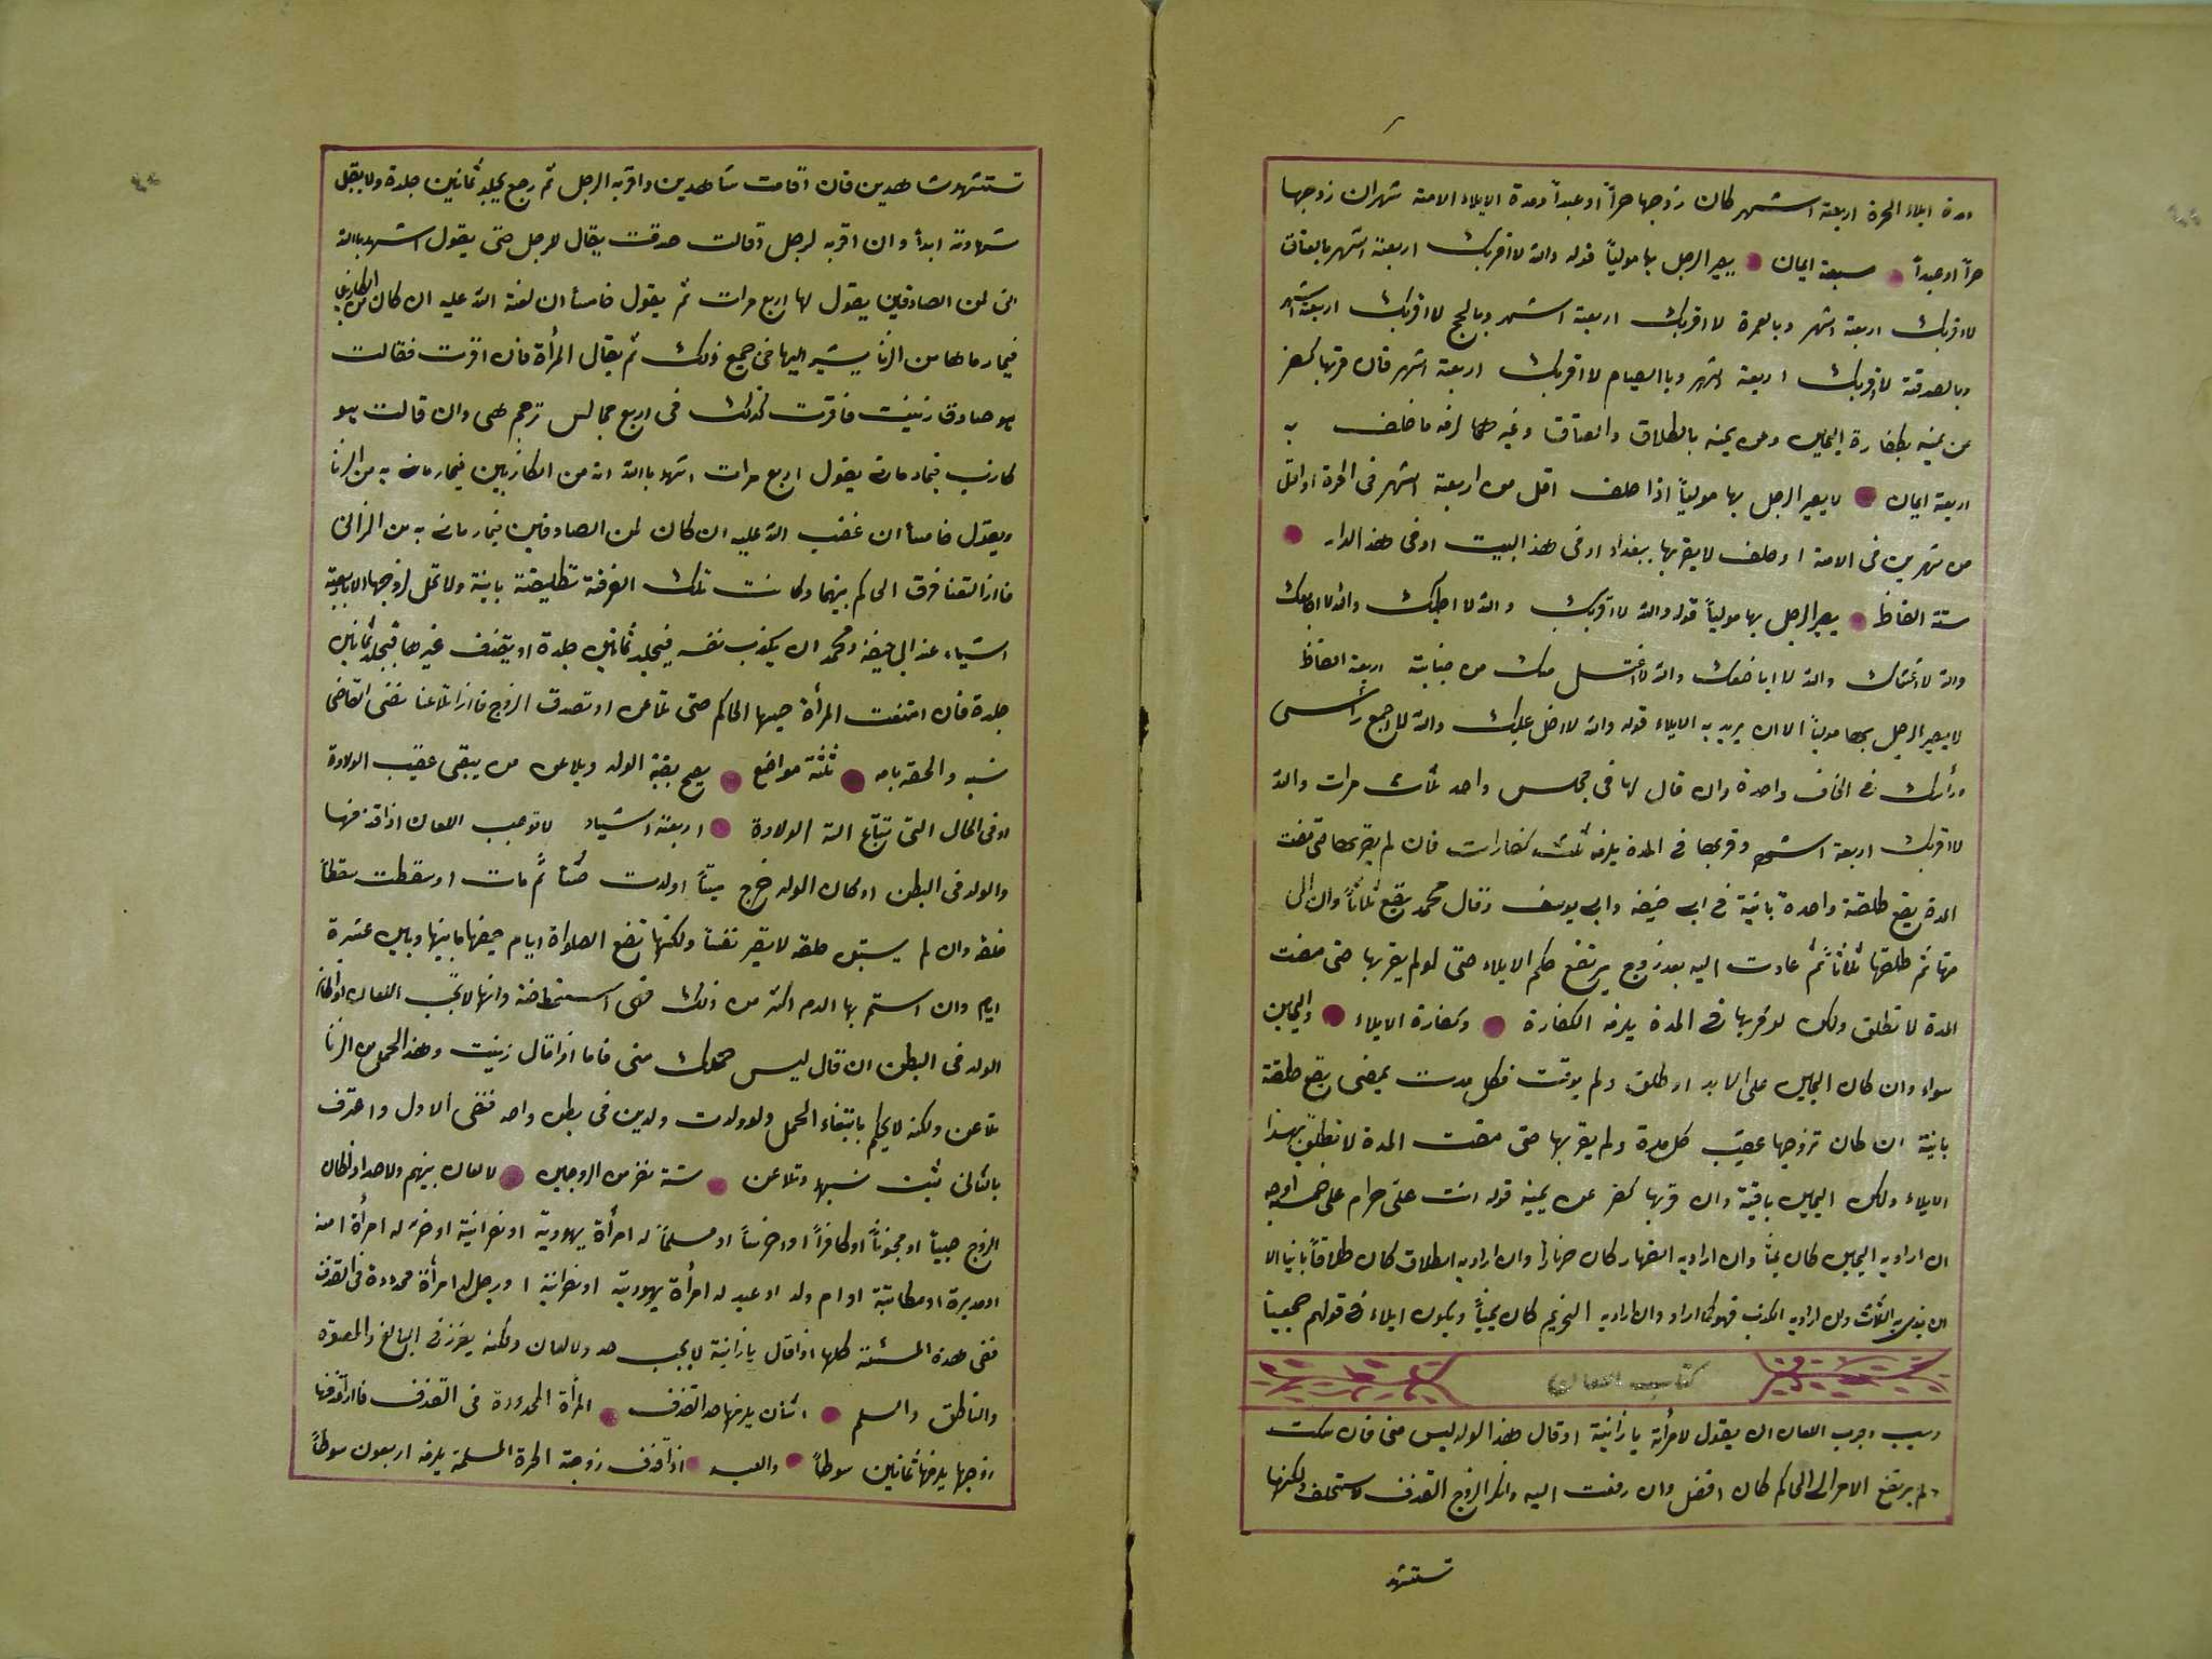 مدة ايلاء الحرة اربعة اشهر كان زوجها حراً او عبداً ومدة الايلاء الامة شهران زوجها
حراً او عبداً سبعة ايمان يصير الرجل بها مولياً قوله والله لا اقربك اربعة اشهر بالعتاق
لا اقربك اربعة اشهر وبالعمرة لا اقربك اربعة اشهر وبالحج لا اقربك اربعة اشهر
وبالصدقة لا اقربك اربعة اشهر وباالصيام لا اقربك اربعة اشهر فان قربها كفر
عن يمينه بكفارة اليمين وعن يمينه بالطلاق والعتاق وغيرهما لزمه ما حلف به
اربعة ايمان لا يصير الرجل بها مولياً اذا حلف اقل من اربعة اشهر فى الحرة او اقل
من شهرين فى الامة او حلف لا يقربها ببغداد او فى هذا البيت او فى هذا الدار
ستة الفاظ يصير الرجل بها مولياً قوله والله لا اقربك والله لا اطأك والله لا اجامعك
والله لا اغشاك والله لا اباضعك والله لا اغتسل منك من جنابة اربعة الفاظ
لا يصير الرجل بها مولياً الا ان يريد به الايلاء قوله والله لا ادخل عليك والله لا اجمع رأسى
ورأسك فى لحاف واحدة وان قال لها فى مجلس واحد ثلث مرات والله
لا اقربك اربعة اشهر وقربها فى المدة يلزمه ثلث كفارات فان لم يقربها حتى مضت
المدة يقع طلقة واحدة بانية فى ابى حنيفه وابى يوسف وقال محمد يقع ثلاثاً وان الى
منها ثم طلقها ثلاثاً ثم عادت اليه بعد زوج يرتفع حكم الايلاء حتى لو لم يقربها حتى مضت
المدة لا تطلق ولكن لو قربها فى المدة يلزمه الكفارة وكفارة الايلاء واليمين
سواء وان كان اليمين على الابد او طلق ولم يوقت فكل مدت يمضى يقع طلقة
بانية ان كان تزوجها عقيب كل مدة ولم يقربها حتى مضت المدة لا تطلق بهذا
الايلاء ولكن اليمين باقية وان قربها كفر عن يمينه قوله انت علىّ حرام على خمسة اوجه
ان اراد به اليمين كان يميناً وان اراد به الظهار كان ظهاراً وان اراد به الطلاق كان طلاقاً بانيا الا
ان ينوى به الثلث وان اراد به الكذب فهو كما اراد وان اراد به التحريم كان يميناً ويكون ايلاء فى قولهم جميعاً
كتاب اللعان
وسبب وجوب اللعان ان يقول لامرأته يا زانية او قال هذا الولد ليس منى فان سكت
ولم يرتفع الامر الى الحاكم كان افضل وان رفعت اليه وانكر الزوج القذف لا يستحلف ولكنها
تستشهد
تستشهد شاهدين فان اقامت شاهدين واقر به الرجل ثم رجع يجلد ثمانين جلدة ولا يقبل
شهادته ابداً وان اقر به لرجل وقالت صدقت يقال لرجل حتى يقول اشهد باالله
انى لمن الصادقين يقول لها اربع مرات ثم يقول خامساً ان لعنة الله عليه ان كان من الكاذبين
فيما رماها من الزنا يشير اليها فى جميع ذلك ثم يقال المرأة فان اقرت فقالت
هو صادق زنيت فاقرت كذلك فى اربع مجالس ترجم هى وان قالت هو
كاذب فيما رمانى يقول اربع مرات اشهد باالله انه من الكاذبين فيما رمانى به من الزنا
ويقول خامساً ان غضب الله عليه ان كان لمن الصادقين فيما رمانى به من الزانى
فاذا التعنا فرق الحاكم بينهما وكانت تلك الفرقة تطليقة بانية ولا تحل لزوجها الا باربعة
اشياء عند ابى حنيفة ومحمد ان يكذب نفسه فيجلد ثمانين جلدة او يقذف غيرها فيجلد ثمانين
جلدة فان امتنعت المرأة حبسها الحاكم حتى تلاعن او تصدق الزوج فاذا تلاعنا نفى القاضى
نسبه والحقه بامه ثلثة مواضع يصح بقية الولد ويلاعن من يبقى عقيب الولادة
او فى الحال التى تبتاع الة الولادة اربعة اشياء لا توجب اللعان اذا قذفها
والولد فى البطن او كان الولد خرج ميتاً او ولدت ثم مات او سقطت سقطاً
خلقه وان لم يستبن خلقه لا يصير نفساً ولكنها تضع الصلواة ايام حيضها ما بينها وبين عشرة
ايام وان استمر بها الدم اكثر من ذلك فهى استحاضة وانها لا يجب اللعان لو كان
الولد فى البطن ان قال ليس حملك منى فاما اذا قال زنيت وهذا الحمل من الزنا
تلاعن ولكنه لا يحكم بانتفاء الحمل ولو ولدت ولدين فى بطن واحد فنفى الاول واعترف
بالثانى يثبت نسبهما وتلاعن ستة نفر من الزوجين لا لعان بينهم ولا حد او لو كان
الزوج صبياً او مجنوناً او كافراً او اخرساً او مسلماً له امرأة يهودية او نصرانية او حر له امرأة امة
او مدبرة او مكاتبة او ام ولد او عبد له امرأة يهودية او نصرانية او رجل له امرأة محدودة فى القذف
ففى هذه المسئلة كلها اذا قال يا زانية لا يجب حد ولا لعان ولكنه يعزر فى البالغ والمعتوه
والناطق والمسلم اثنان يلزمها حد القذف المرأة المحدودة فى القذف فاذا قذفها
زوجها يلزمها ثمانين سوطاً والعبد اذا قذف زوجة الحرة المسلمة يلزمه اربعون سوطاً